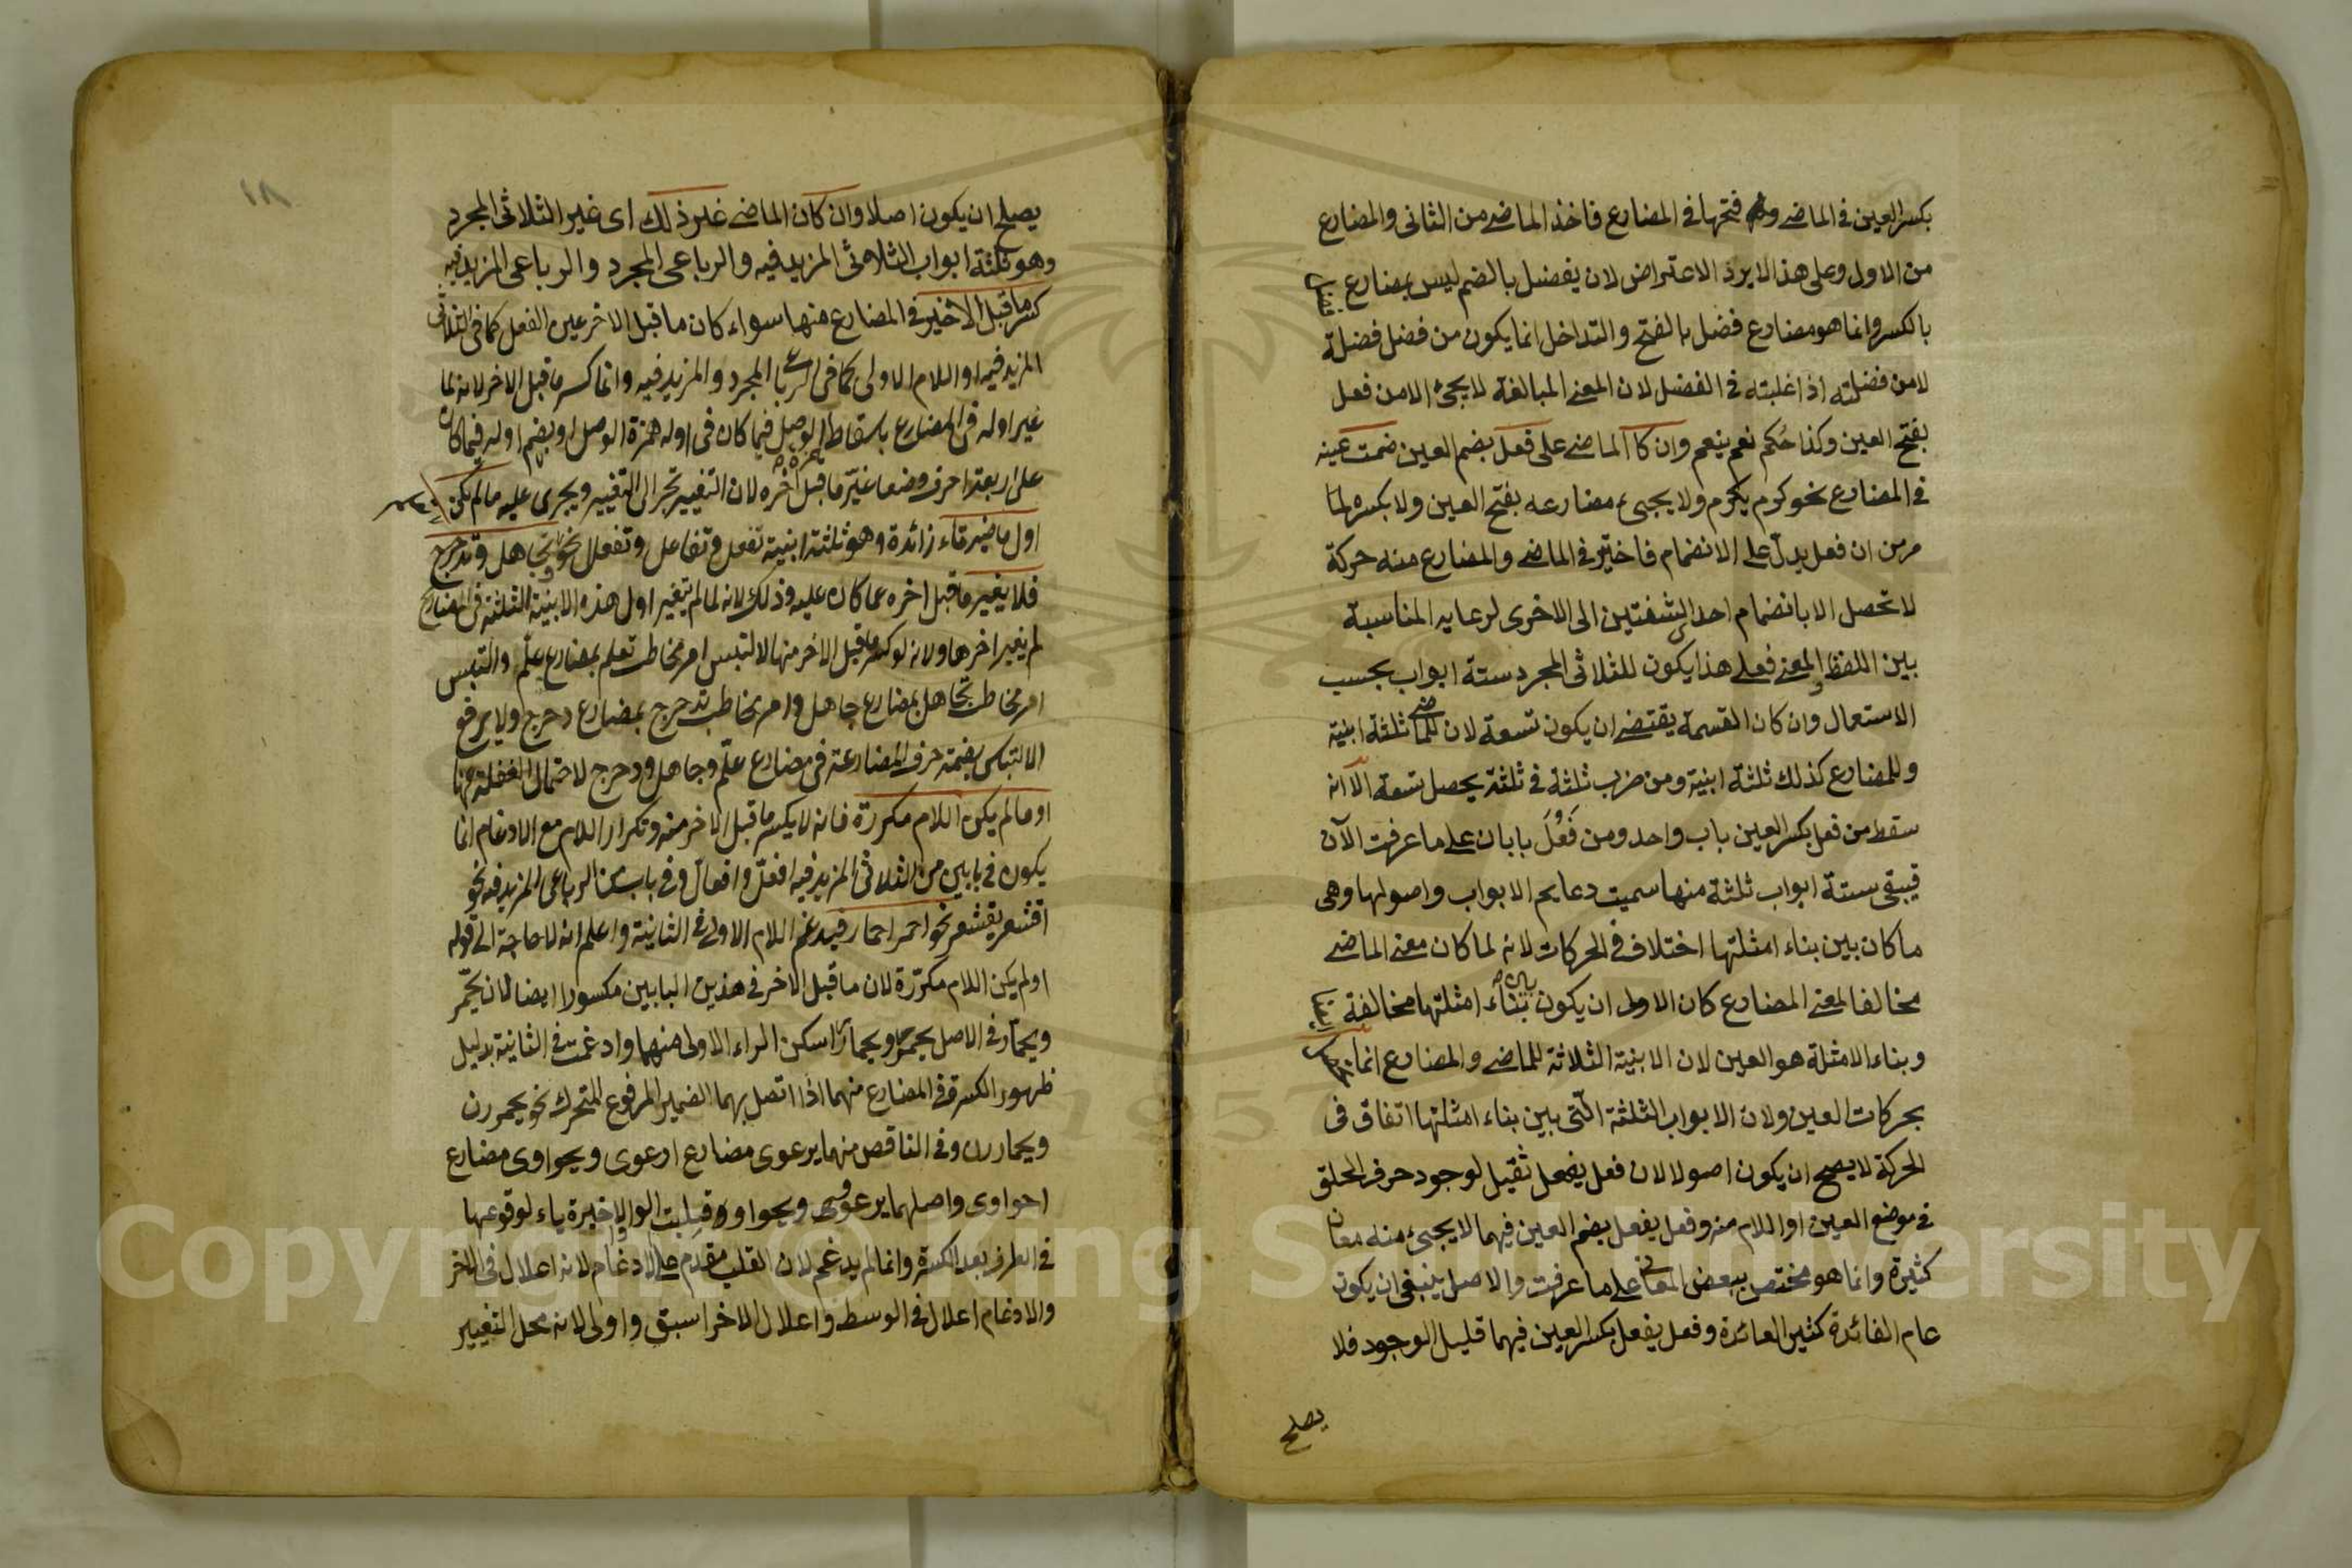 بكسر العين في الماضي وفتحها في المضارع فاخذ الماضي من الثاني والمضارع
من الاول وعلى هذا لا يرد الاعتراض لان يفضل بالضم ليس بمضارع فضل
بالكسر وانما هو مضارع فضل بالفتح والتداخل انما يكون من فضل فضلة
لا من فضلته اذا غلبته في الفضل لان المعنى المبالغة لا يجئ الا من فعل
بفتح العين وكذا حكم نعم ينعم وان كا الماضي على فعل بضم العين ضمت عينه
في المضارع نحو كرم يكرم ولا يجيء مضارعه بفتح العين ولا بكسرها لما
مر من ان فعل يدل على الانضمام فاختير في الماضي والمضارع منه حركة
لا تحصل الا بانضمام احد الشفتين الى الاخرى لرعاية المناسبة
بين اللفظ والمعنى فعلى هذا يكون للثلاثي المجرد ستة ابواب بحسب
الاستعمال وان كان القسمة يقتضي ان يكون تسعة لان للماضي ثلثة ابنية
وللمضارع كذلك ثلثة ابنية ومن ضرب ثلثة في ثلثة يحصل تسعة الا انه
سقط من فعل بكسر العين باب واحد ومن فَعُلَ بابان على ما عرفت الآن
فيبقى ستة ابواب ثلثة منها سميت دعايم الابواب واصولها وهي
ما كان بين بناء امثلتها اختلاف في الحركات لانه لما كان معنى الماضي
مخالفا لمعنى المضارع كان الاولى ان يكون بناء امثلتها مخالفة
وبناء الامثلة هو العين لان الابنية الثلاثة للماضي والمضارع انما
بحركات العين ولان الابواب الثلثة التي بين بناء امثلتها اتفاق في
الحركة لا يصح ان يكون اصولا لان فعل يفعل ثقيل لوجود حرف الحلق
في موضع العين او اللام منه وفعل يفعل بضم العين فيهما لا يجيئ منه معان
كثيرة وانما هو مختص ببعض المعاني على ما عرفت والاصل ينبغي ان يكون
عام الفائدة كثير العائدة وفعل يفعل بكسر العين فيهما قليل الوجود فلا
يصلح
١٨
يصلح ان يكون اصلا وان كان الماضي غير ذلك اى غير الثلاثي المجرد
وهو ثلثة ابواب الثلاثي المزيد فيه والرباعي المجرد والرباعي المزيد فيه
كسر ما قبل الاخير في المضارع منها سواء كان ما قبل الاخر عين الفعل كما في الثلاثي
المزيد فيه او اللام الاولى كما في الرباعي المجرد والمزيد فيه وانما كسر ما قبل الاخر لانه لما
غير اوله في المضارع باسقاط همزة الوصل فيما كان في اوله همزة الوصل او بضم اوله فيما كان
على اربعة احرف وضعا غيّر ما قبل اخره لان التغيير تجر الى التغيير ويجرى عليه ما لم يكن
اول ماضيه تاء زائدة وهو ثلثة ابنية تفعل وتفاعل وتفعلل نحو تجاهل وتدحرج
فلا يغير ما قبل اخره عما كان عليه وذلك لانه لما لم يتغير اول هذه الابنية الثلثة في المضارع
لم يغير اخرها ولانه لو كسر ما قبل الاخر منها لالتبس امر مخاطب تعلم بمضارع علّم والتبس
امر مخاطب تجاهل بمضارع جاهل وامر مخاطب تدحرج بمضارع دحرج ولا يرفع
الالتباس بضمة حرف المضارعة في مضارع علّم وجاهل ودحرج لاحتمال الغفلة عنها
او ما لم يكن اللام مكررة فانه لا يكسر ما قبل الاخر منه وتكرار اللام مع الادغام انما
يكون في بابين من الثلاثي المزيد فيه افعلّ وافعالّ وفي باب من الرباعي المزيد فيه نحو
اقشعر يقشعر نحو احمر احمار فيدغم اللام الاولى في الثانية واعلم انه لا حاجة الى قوله
اولم يكن اللام مكرّرة لان ما قبل الاخر في هذين البابين مكسورا ايضا لان يحمّر
ويحمارّ في الاصل يحمرر ويحمارر اسكن الراء الاولى منهما وادغمت في الثانية بدليل
ظهور الكسرة في المضارع منهما اذا اتصل بهما الضمير المرفوع المتحرك نحو يحمررن
ويحماررن وفي الناقص منهما يرعوى مضارع ارعوى ويحواوى مضارع
احواوى واصلهما يرعوو ويحواوو قلبت الواو الاخيرة ياء لوقوعها
في الطرف بعد الكسرة وانما لم يدغم لان القلب مقدم على الادغام لانه اعلال في الاخر
والادغام اعلال في الوسط واعلال الاخر اسبق واولى لانه محل التغيير
Copyright © King Saud University
1957